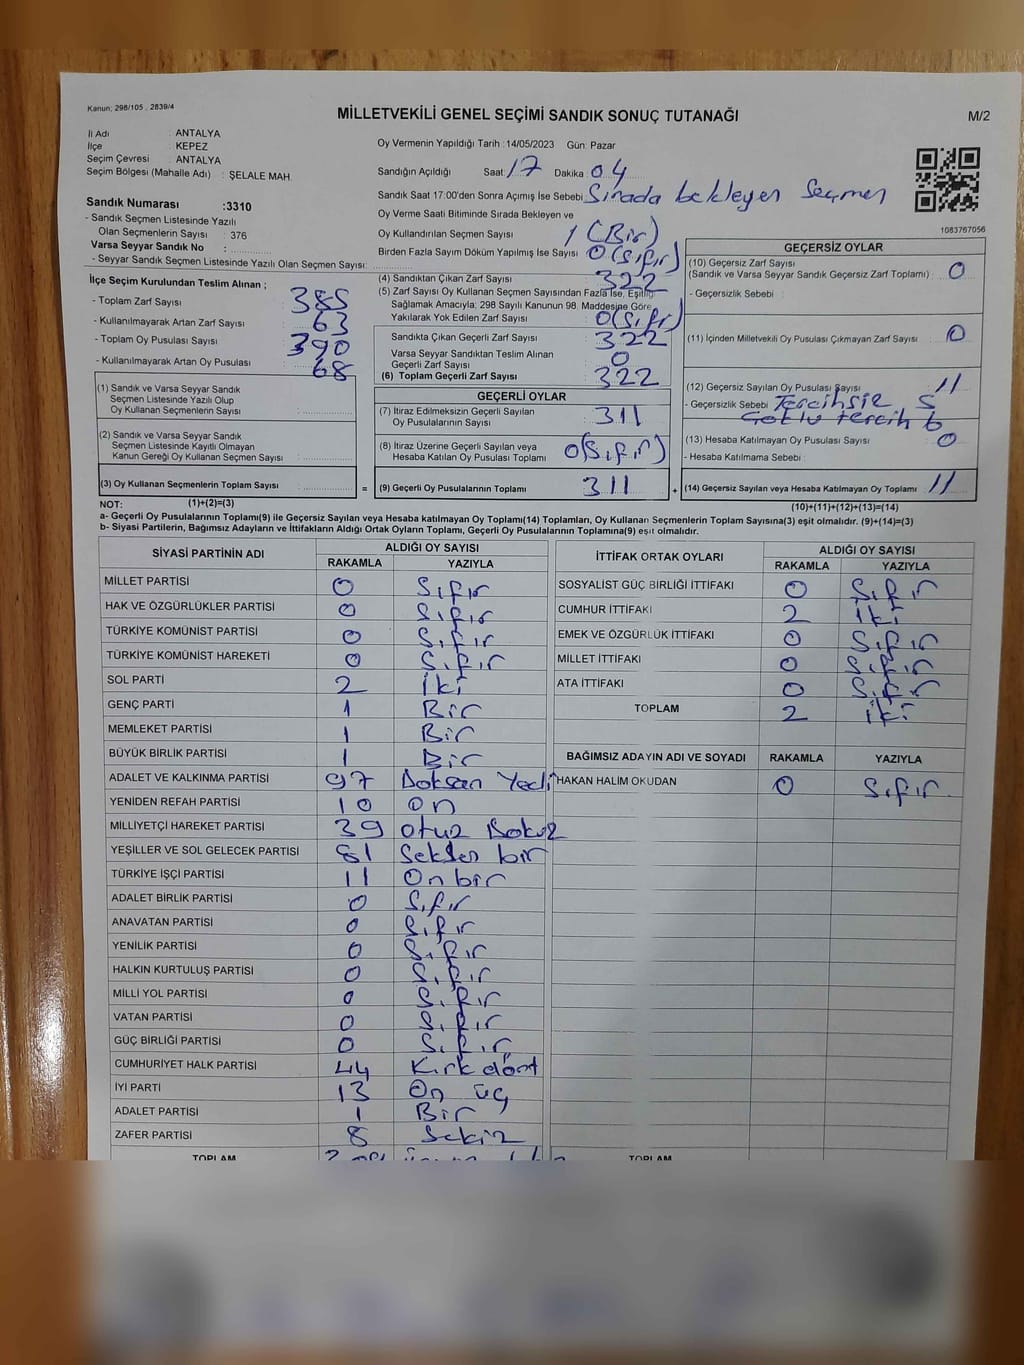 Kanun; 298/105 , 2839/4
MİLLETVEKİLİ GENEL SEÇİMİ SANDIK SONUÇ TUTANAĞI
M/2
İl Adı : ANTALYA
İlçe : KEPEZ
Seçim Çevresi : ANTALYA
Seçim Bölgesi (Mahalle Adı) : ŞELALE MAH.
Oy Vermenin Yapıldığı Tarih : 14/05/2023 Gün: Pazar
Sandığın Açıldığı Saat: 17 Dakika : 04
Sandık Saat 17:00'den Sonra Açımış İse Sebebi: Sırada bekleyen Seçmen
Oy Verme Saati Bitiminde Sırada Bekleyen ve
Oy Kullandırılan Seçmen Sayısı : 1 (Bir)
Birden Fazla Sayım Döküm Yapılmış İse Sayısı : 0 (Sıfır)
1083767056
Sandık Numarası :3310
- Sandık Seçmen Listesinde Yazılı
Olan Seçmenlerin Sayısı : 376
Varsa Seyyar Sandık No :
- Seyyar Sandık Seçmen Listesinde Yazılı Olan Seçmen Sayısı:
İlçe Seçim Kurulundan Teslim Alınan ;
- Toplam Zarf Sayısı : 385
- Kullanılmayarak Artan Zarf Sayısı : 63
- Toplam Oy Pusulası Sayısı : 390
- Kullanılmayarak Artan Oy Pusulası : 68
(1) Sandık ve Varsa Seyyar Sandık
Seçmen Listesinde Yazılı Olup
Oy Kullanan Seçmenlerin Sayısı :
(2) Sandık ve Varsa Seyyar Sandık
Seçmen Listesinde Kayıtlı Olmayan
Kanun Gereği Oy Kullanan Seçmen Sayısı :
(3) Oy Kullanan Seçmenlerin Toplam Sayısı :
(4) Sandıktan Çıkan Zarf Sayısı : 322
(5) Zarf Sayısı Oy Kullanan Seçmen Sayısından Fazla İse, Eşitliği
Sağlamak Amacıyla; 298 Sayılı Kanunun 98. Maddesine Göre
Yakılarak Yok Edilen Zarf Sayısı : 0(Sıfır)
Sandıkta Çıkan Geçerli Zarf Sayısı : 322
Varsa Seyyar Sandıktan Teslim Alınan
Geçerli Zarf Sayısı : 0
(6) Toplam Geçerli Zarf Sayısı : 322
GEÇERLİ OYLAR
(7) İtiraz Edilmeksizin Geçerli Sayılan
Oy Pusulalarının Sayısı : 311
(8) İtiraz Üzerine Geçerli Sayılan veya
Hesaba Katılan Oy Pusulası Toplamı : 0(Sıfır)
= (9) Geçerli Oy Pusulalarının Toplamı : 311
GEÇERSİZ OYLAR
(10) Geçersiz Zarf Sayısı
(Sandık ve Varsa Seyyar Sandık Geçersiz Zarf Toplamı) : 0
- Geçersizlik Sebebi :
(11) İçinden Milletvekili Oy Pusulası Çıkmayan Zarf Sayısı : 0
(12) Geçersiz Sayılan Oy Pusulası Sayısı : 11
- Geçersizlik Sebebi : Tercihsiz 5
Çoklu tercih 6
(13) Hesaba Katılmayan Oy Pusulası Sayısı : 0
- Hesaba Katılmama Sebebi :
+ (14) Geçersiz Sayılan veya Hesaba Katılmayan Oy Toplamı : 11
NOT: (1)+(2)=(3)
(10)+(11)+(12)+(13)=(14)
a- Geçerli Oy Pusulalarının Toplamı(9) ile Geçersiz Sayılan veya Hesaba katılmayan Oy Toplamı(14) Toplamları, Oy Kullanan Seçmenlerin Toplam Sayısına(3) eşit olmalıdır. (9)+(14)=(3)
b- Siyasi Partilerin, Bağımsız Adayların ve İttifakların Aldığı Ortak Oyların Toplamı, Geçerli Oy Pusulalarının Toplamına(9) eşit olmalıdır.
SİYASİ PARTİNİN ADI
ALDIĞI OY SAYISI
RAKAMLA YAZIYLA
MİLLET PARTİSİ 0 Sıfır
HAK VE ÖZGÜRLÜKLER PARTİSİ 0 Sıfır
TÜRKİYE KOMÜNİST PARTİSİ 0 Sıfır
TÜRKİYE KOMÜNİST HAREKETİ 0 Sıfır
SOL PARTİ 2 İki
GENÇ PARTİ 1 Bir
MEMLEKET PARTİSİ 1 Bir
BÜYÜK BİRLİK PARTİSİ 1 Bir
ADALET VE KALKINMA PARTİSİ 97 Doksan Yedi
YENİDEN REFAH PARTİSİ 10 On
MİLLİYETÇİ HAREKET PARTİSİ 39 Otuz Dokuz
YEŞİLLER VE SOL GELECEK PARTİSİ 81 Seksen bir
TÜRKİYE İŞÇİ PARTİSİ 11 Onbir
ADALET BİRLİK PARTİSİ 0 Sıfır
ANAVATAN PARTİSİ 0 Sıfır
YENİLİK PARTİSİ 0 Sıfır
HALKIN KURTULUŞ PARTİSİ 0 Sıfır
MİLLİ YOL PARTİSİ 0 Sıfır
VATAN PARTİSİ 0 Sıfır
GÜÇ BİRLİĞİ PARTİSİ 0 Sıfır
CUMHURİYET HALK PARTİSİ 44 Kırk dört
İYİ PARTİ 13 On üç
ADALET PARTİSİ 1 Bir
ZAFER PARTİSİ 8 Sekiz
TOPLAM
İTTİFAK ORTAK OYLARI
ALDIĞI OY SAYISI
RAKAMLA YAZIYLA
SOSYALİST GÜÇ BİRLİĞİ İTTİFAKI 0 Sıfır
CUMHUR İTTİFAKI 2 İki
EMEK VE ÖZGÜRLÜK İTTİFAKI 0 Sıfır
MİLLET İTTİFAKI 0 Sıfır
ATA İTTİFAKI 0 Sıfır
TOPLAM 2 İki
BAĞIMSIZ ADAYIN ADI VE SOYADI RAKAMLA YAZIYLA
HAKAN HALİM OKUDAN 0 Sıfır
TOPLAM